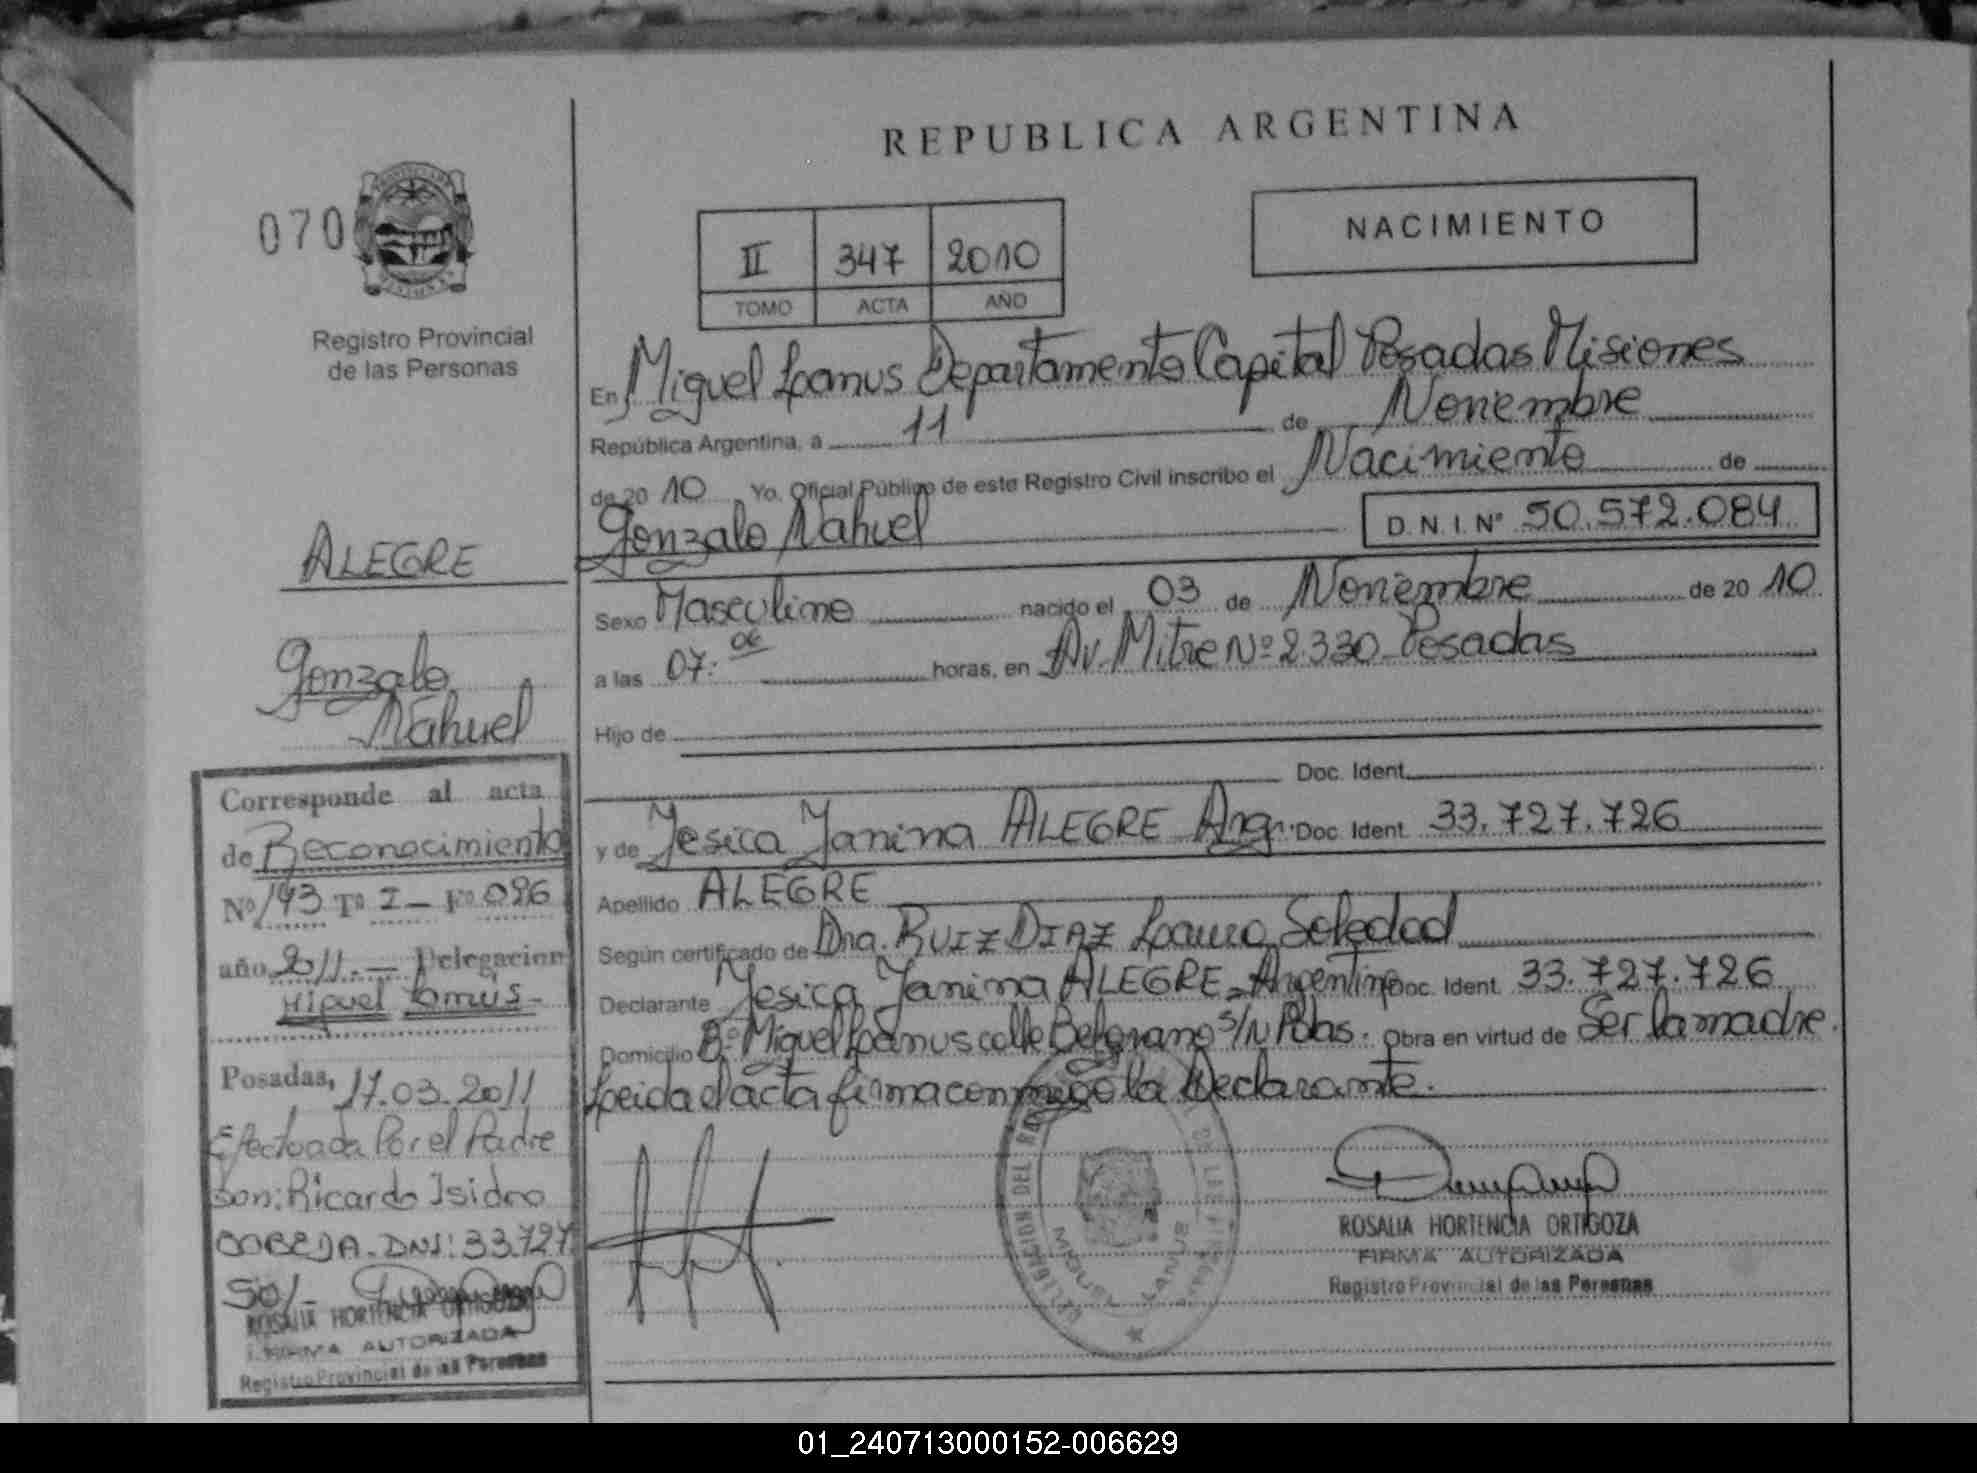 REPUBLICA ARGENTINA
070
Registro Provincial
de las Personas
II 347 2010
TOMO ACTA AÑO
NACIMIENTO
En Miguel Lanus Departamento Capital Posadas Misiones
República Argentina, a 11 de Noviembre
de 20 10 Yo, Oficial Público de este Registro Civil inscribo el Nacimiento de
Gonzalo Nahuel D.N.I. Nº 50.572.084
ALEGRE
Gonzalo
Nahuel
Sexo Masculino nacido el 03 de Noviembre de 20 10
a las 07:00 horas, en Av. Mitre Nº 2.330 Posadas
Hijo de
Doc. Ident.
y de Yesica Yanina ALEGRE Arg. Doc. Ident. 33.727.726
Apellido ALEGRE
Según certificado de Dra. RUIZ DIAZ Laura Soledad
Declarante Yesica Yanina ALEGRE Argentina Doc. Ident. 33.727.726
Domicilio Bº Miguel Lanus calle Belgrano S/N Pdas. Obra en virtud de Ser la madre.
Leida el acta firma conmigo la Declarante.
Corresponde al acta
de Reconocimiento
Nº 143 Tº I - Fº 026
año 2011.- Delegacion
Miguel Lanus-
Posadas, 17.03.2011
Efectuada Por el Padre
Don: Ricardo Isidro
DNI: 33.727
ROSALIA HORTENCIA ORTIGOZA
FIRMA AUTORIZADA
Registro Provincial de las Personas
DELEGACION DEL
MIGUEL LANUS
ROSALIA HORTENCIA ORTIGOZA
FIRMA AUTORIZADA
Registro Provincial de las Personas
01_240713000152-006629